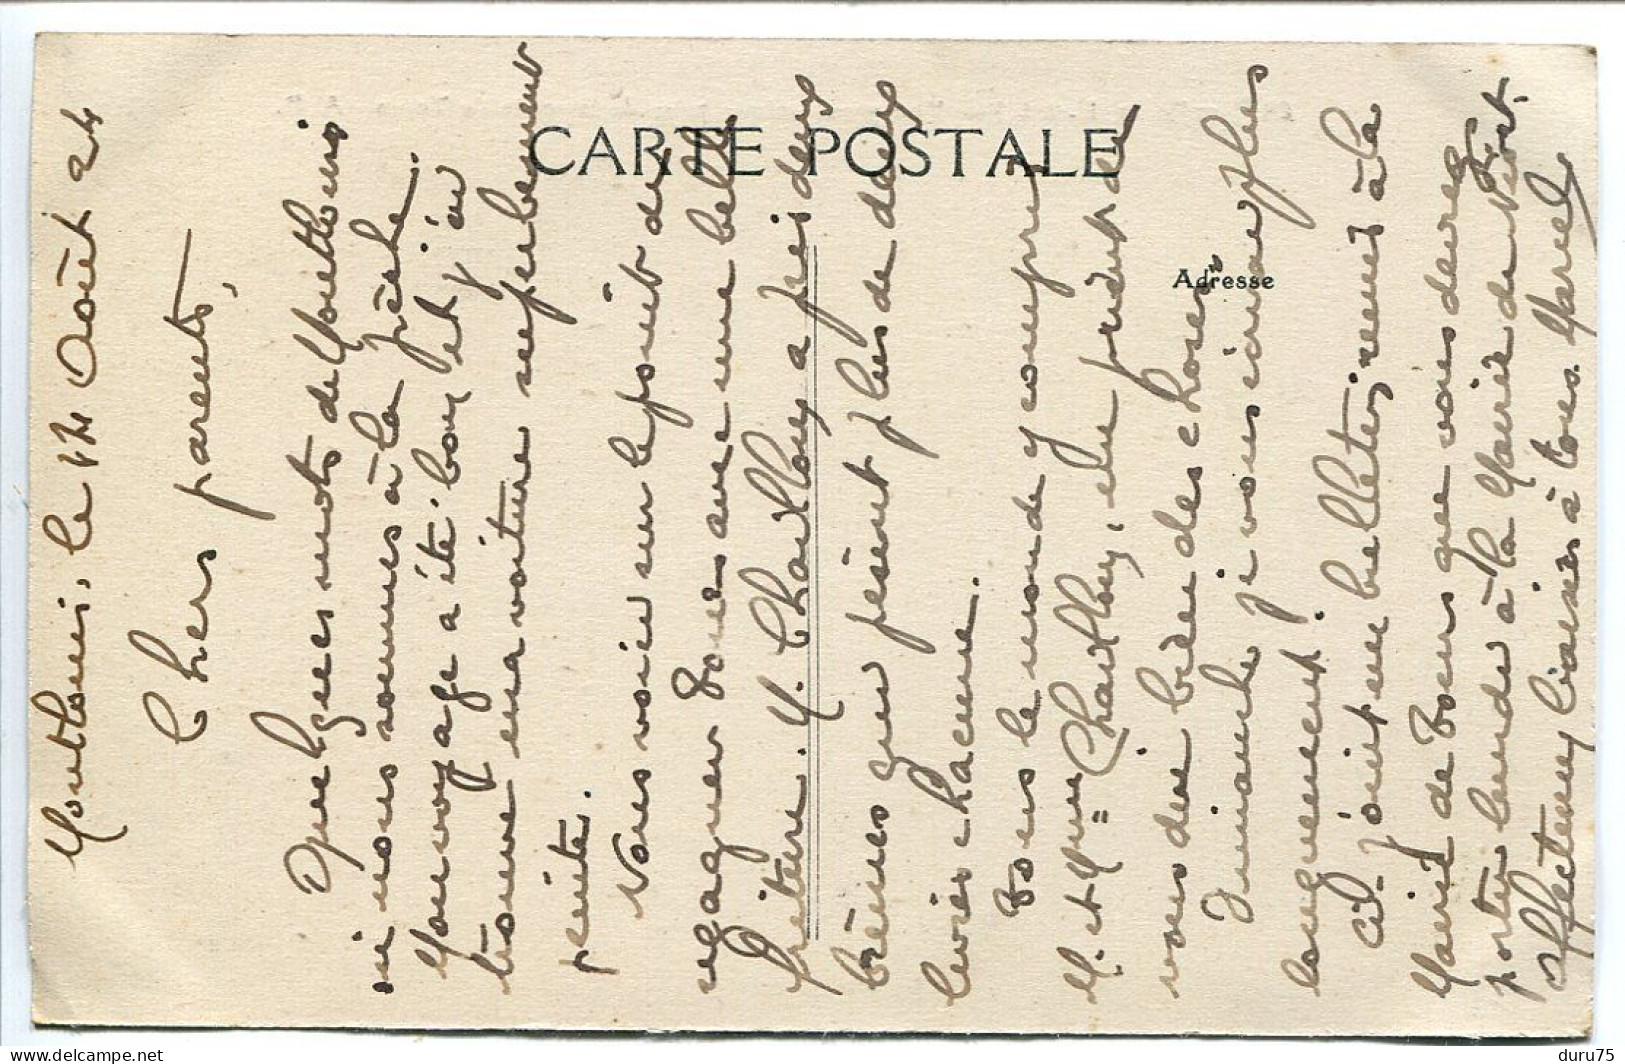 CARTE POSTALE
Adresse
Montlouis, le 14 Août 24
Chers parents,
Quelques mots de Montlouis
où nous sommes à la pêche.
Mon voyage a été bon et j'ai
trouvé ma voiture superbement
peinte.
Vous voici sur le point de
regagner Tours avec une belle
friture. M. Chaillou a pris deux
brèmes qui pèsent plus de deux
livres chacune.
Tous le monde y compris
M. et Mme Chaillou, en priant de
vous dire bien des choses.
Dimanche je vous écrirai plus
longuement.
Ci-joint un bulletin remis à la
Mairie de Tours que vous devrez
porter lundi à la Mairie de Niort.
Affectueux baisers à tous. Marcel
duru75